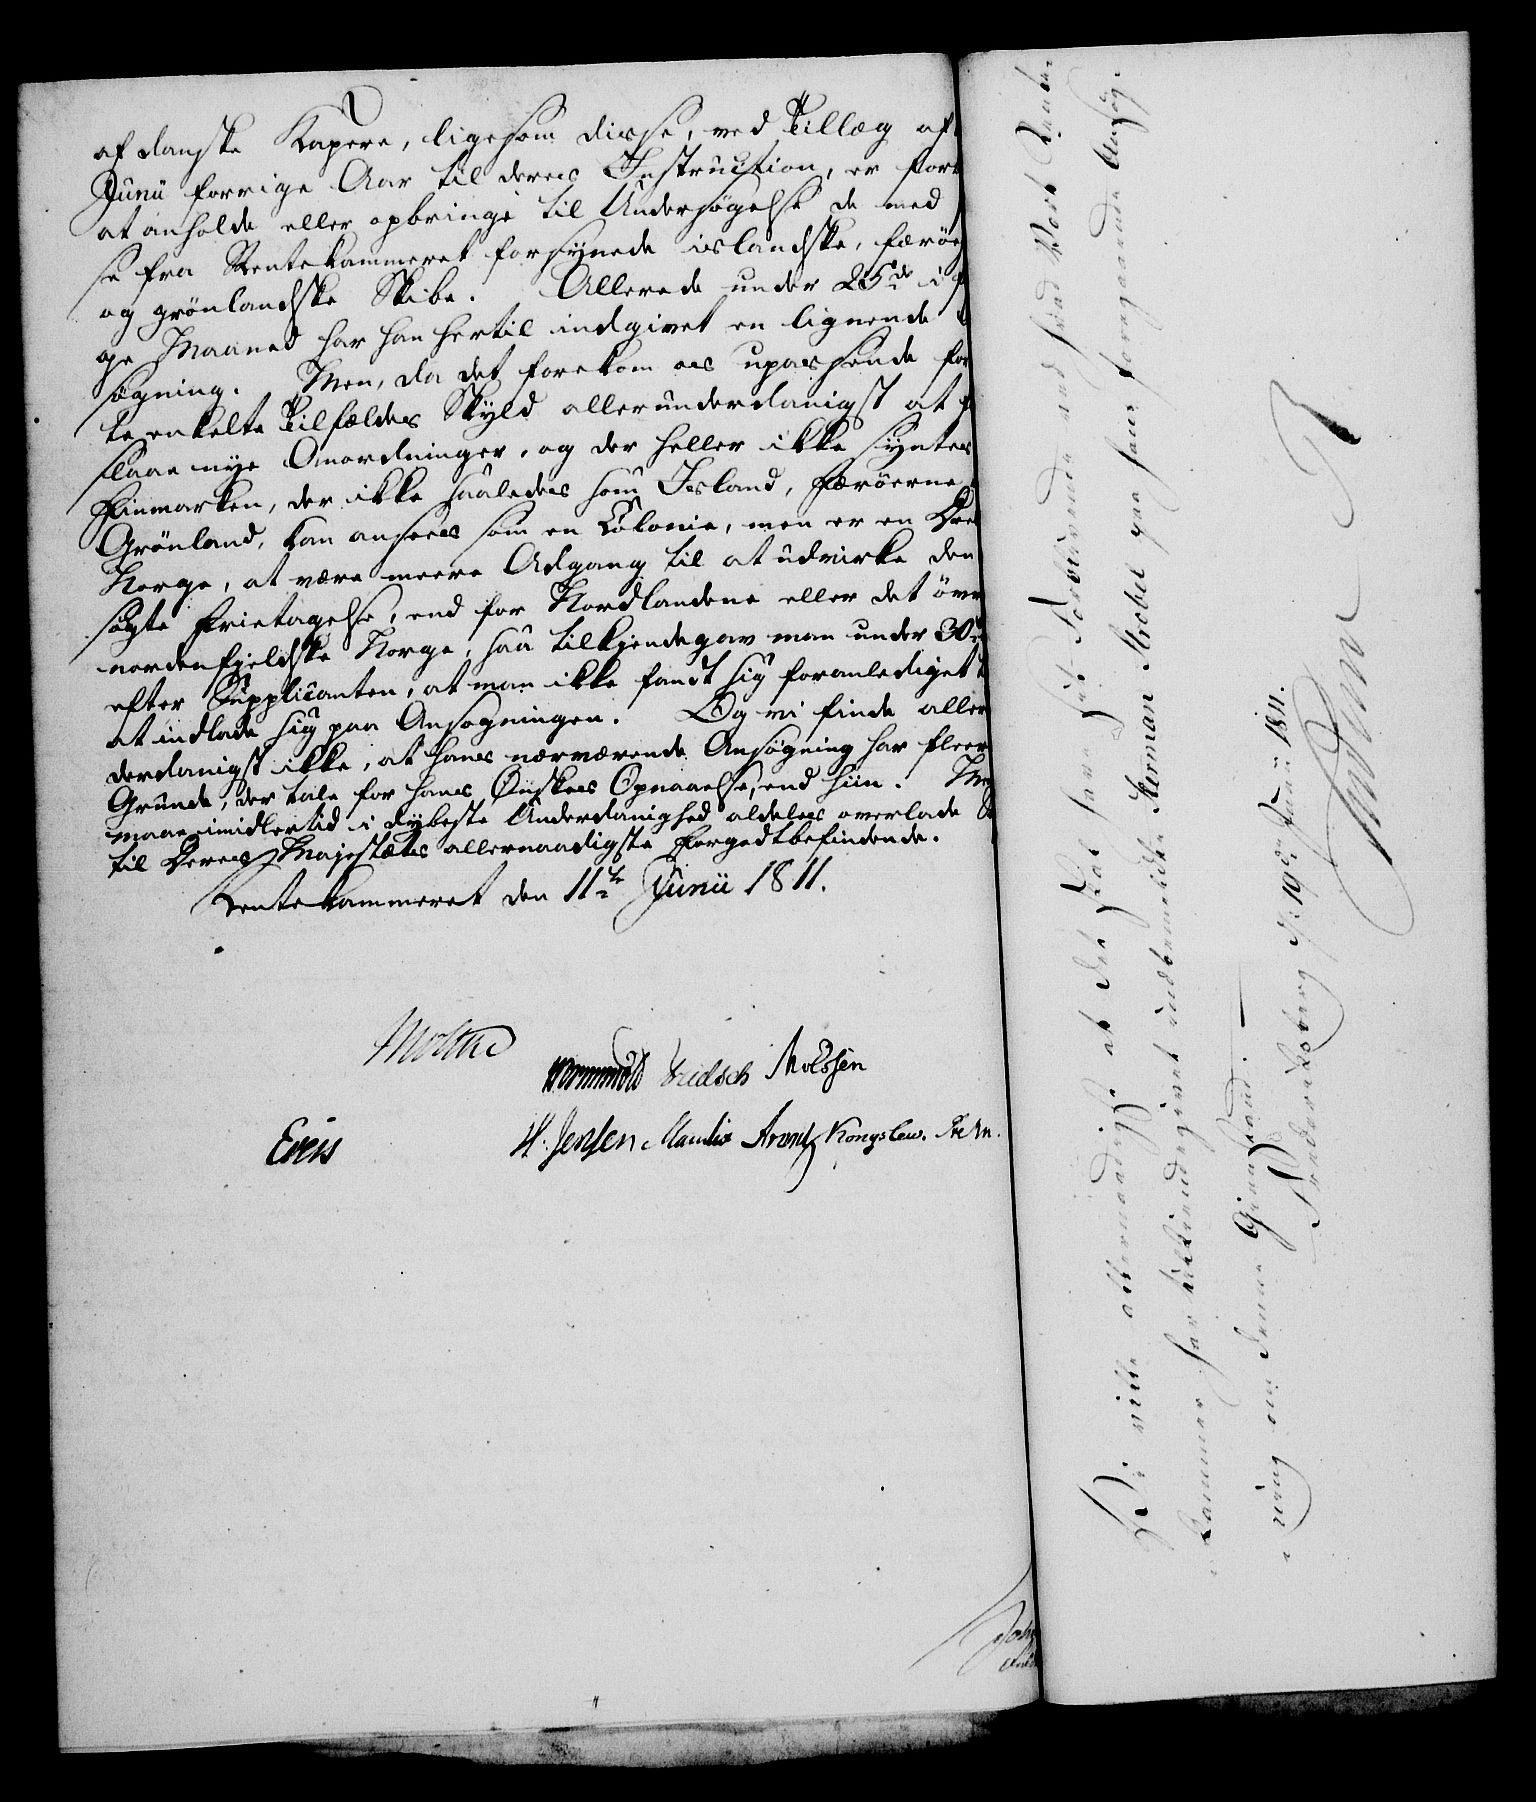 af danske Kapere, ligesom disse, ved Tillæg af
Junii forrige Aar til deres Instruction, er for
at anholde eller opbringe til Undersøgelse de med
se fra Rentekammeret forsynede islandske, færøe
og grönlandske Skibe. Allerede under 25de i f
ge Maaned har han hertil indgivet en lignende
søgning. Men, da det forekom os upassende for
te enkelte Tilfældes Skyld allerunderdanigst at f
slaae nye Anordninger, og der heller ikke syntes
Finmarken, der ikke saaledes som Island, Færöerne
Grönland, kan ansees som en Colonie, men er en Deel
Norge, at være meere Adgang til at udvirke den
søgte Fritagelse, end for Nordlandene eller det övr
nordenfjeldske Norge, saa tilkjendegav man under 30
efter Supplicanten, at man ikke fandt sig foranlediget t
at indlade sig paa Ansøgningen. Og vi finde aller
derdanigst ikke, at hans nærværende Ansøgning har fleer
Grunde, der tale for hans Ønskes Opnaaelse, end hiin. Me
maae imidlertid i dybeste Underdanighed aldeles overlade
til Deres Majestæts allernaadigste Forgodtbefindende.
Rentekammeret den 11te Junii 1811.
Moltke
Wormskiold Fridsch Moessen
Evers H. Jensen Arentz Kongslew.
Vi ville allernaadigst at det skal have sit Forblivende ved hvad Vort Rente-
kammer har tilkiendegivet indbemeldte Herman Strobel paa hans foregaaende Ansøg-
ning om denne Gienstand.
Frederiksberg d: 19de Junii 1811.
Frederik R